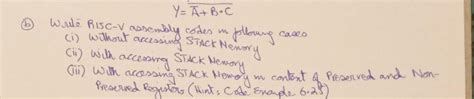 Y = A + B • C
(b) Write RISC-V assembly codes in following cases
(i) Without accessing STACK Memory
(ii) With accessing STACK Memory
(iii) With accessing STACK Memory in context of Preserved and Non-
Preserved Registers (Hint: Code Example 6.28)